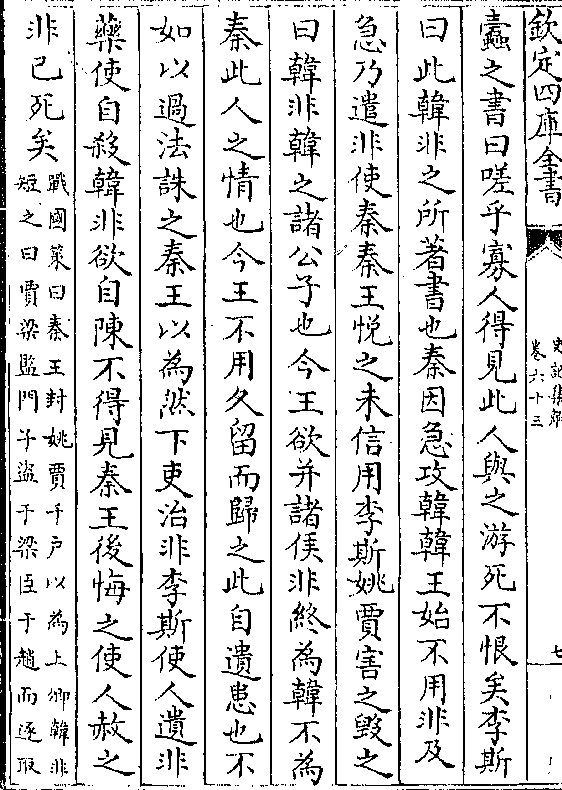 欽定四庫全書
史記集解
卷六十三
七
蠹之書曰嗟乎寡人得見此人與之游死不恨矣李斯
曰此韓非之所著書也秦因急攻韓韓王始不用非及
急乃遣非使秦秦王悅之未信用李斯姚賈害之毀之
曰韓非韓之諸公子也今王欲并諸侯非終為韓不為
秦此人之情也今王不用久留而歸之此自遺患也不
如以過法誅之秦王以為然下吏治非李斯使人遺非
藥使自殺韓非欲自陳不得見秦王後悔之使人赦之
非已死矣
戰國策曰秦王封姚賈千户以為上卿韓非
短之曰賈梁監門子盜于梁臣于趙而逐取